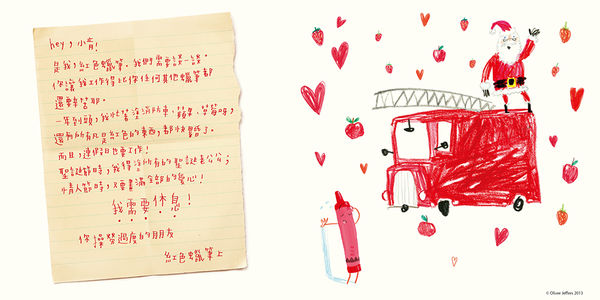 hey，小育！
是我，紅色蠟筆。我們需要談一談。
你讓我工作得比你任何其他蠟筆都
還要辛苦耶。
一年到頭，我忙著塗消防車、蘋果、草莓呀，
還有所有凡是紅色的東西，都快累了。
而且，連假日也要工作！
聖誕節時，我得塗所有的聖誕老公公；
情人節時，又要畫滿全部的愛心！
我需要休息！
你操勞過度的朋友
紅色蠟筆上
© Oliver Jeffers 2013